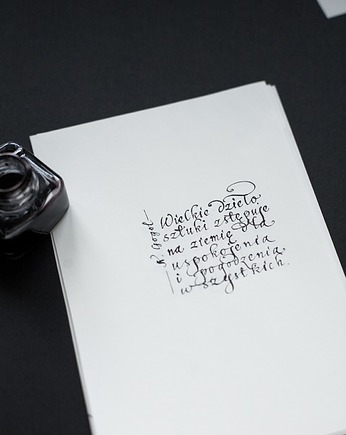 Wielkie dzieło
sztuki zstępuje
na ziemię dla
uspokojenia
i pogodzenia
wszystkich.
Gogol